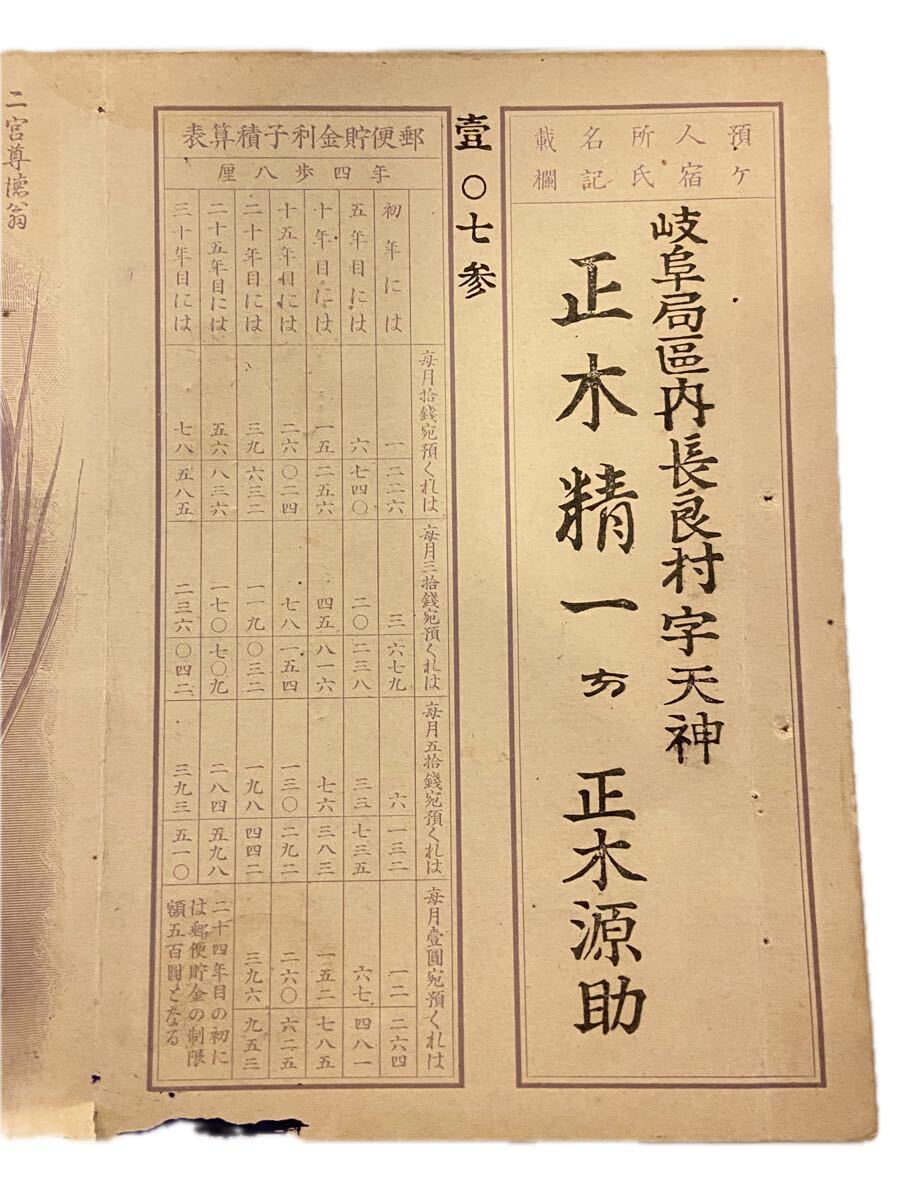 預ケ人宿所氏名記載欄
岐阜局區内長良村字天神
正木精一方 正木源助
壹〇七参
郵便貯金利子積算表
年四歩八厘
毎月拾錢宛預くれは
毎月三拾錢宛預くれは
毎月五拾錢宛預くれは
毎月壹圓宛預くれは
初年には 一 二二六 三 六七九 六 一三二 一二 二六四
五年目には 六 七四〇 二〇 二三八 三三 七三五 六七 四八一
十年目には 一五 二五六 四五 八一六 七六 三八三 一五二 七八五
十五年目には 二六 〇二四 七八 一五四 一三〇 二九二 二六〇 六二五
二十年目には 三九 六三二 一一九 〇三二 一九八 四四二 三九六 九五三
二十五年目には 五六 八三六 一七〇 七〇九 二八四 五九八
三十年目には 七八 五八五 二三六 〇四二 三九三 五一〇
二十四年目の初に
は郵便貯金の制限
額五百圓となる
二宮尊徳翁